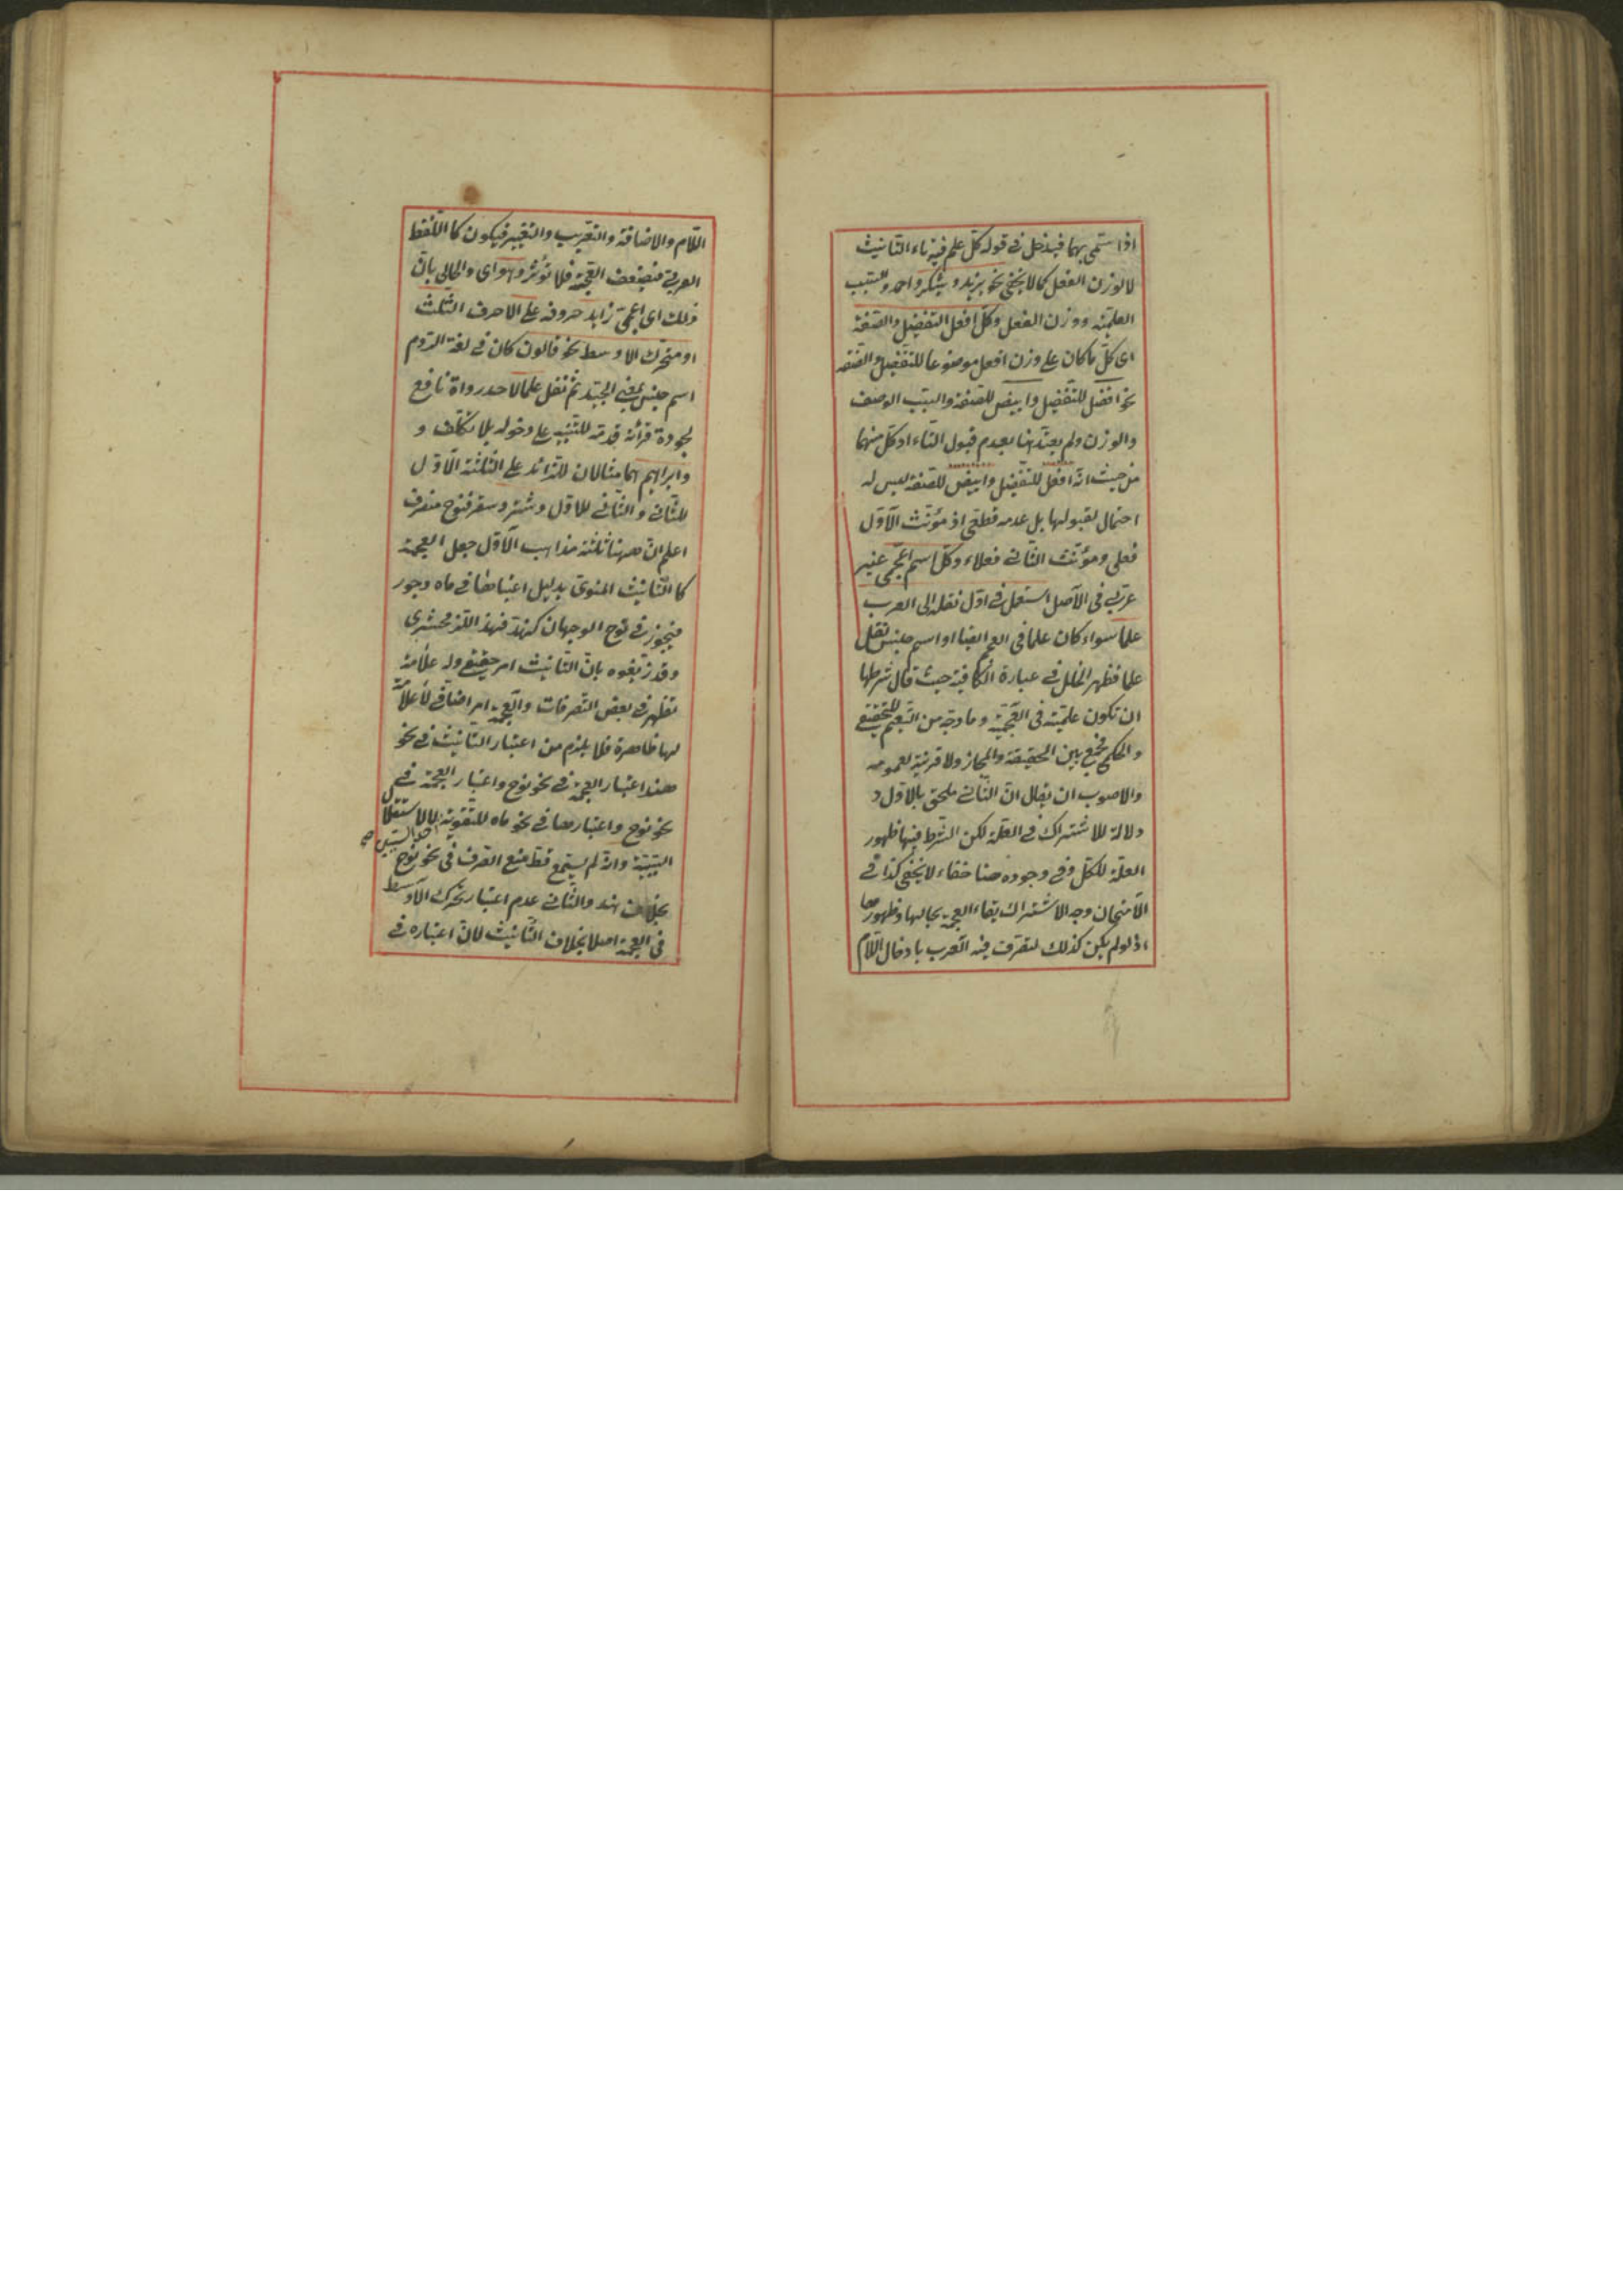 اذا سمى بهما فيدخل فى قوله كل علم فيه تاء التانيث
لا لوزن الفعل كما لا يخفى نحو يزيد ويشكر واحمد والسبب
العلمية ووزن الفعل وكل افعل التفضيل والصفة
اى كل ما كان على وزن افعل موضوعا للتفضيل والصفة
نحو افضل للتفضيل وابيض للصفة والسبب الوصف
والوزن ولم يعتد هنا بعدم قبول التاء اذ كل منهما
من حيث انه افعل للتفضيل وابيض للصفة ليس له
احتمال لقبولها بل عدمه قطعى اذ مؤنث الاول
فعلى ومؤنث الثانى فعلاء وكل اسم اعجمى غير
عربى فى الاصل استعمل فى اول نقله الى العرب
علما سواء كان علما فى العجم ايضا او اسم جنس نقل
علما فظهر الخلل فى عبارة الكافية حيث قال شرطها
ان تكون علمية فى العجمية وما وجه من التعميم للتحقيقى
والحكمى جمع بين الحقيقة والمجاز ولا قرينة لعمومه
والاصوب ان يقال ان الثانى ملحق بالاول و
دلالة للاشتراك فى العلة لكن الشرط فيها ظهور
العلة للكل وفى وجوده هنا خفاء لا يخفى كذا فى
الامتحان وجه الاشتراك بقاء العجمة بحالها وظهورها
اذ لو لم يكن كذلك لتصرف فيه العرب بادخال اللام
اللام والاضافة والتعريب والتغيير فيكون كاللفظ
العربى فيضعف العجمة فلا تؤثر وهو اى والحال بان
ذلك اى اعجمى زايد حروفه على الاحرف الثلث
او متحرك الاوسط نحو قالون كان فى لغة الروم
اسم جنس بمعنى الجيد ثم نقل علما لاحد رواة نافع
لجودة قرأته قدمه للتنبيه على دخوله بلا تكلف و
وابراهيم هما مثالان للزائد على الثلثة الاول
للثانى والثانى للاول وشتر وسقر فنوح منصرف
اعلم ان ههنا ثلثة مذاهب الاول جعل العجمة
كالتانيث المعنوى بدليل اعتبارها فى ماه وجور
فيجوز فى نوح الوجهان كهند فهذا للزمخشرى
وقد زيفوه بان التانيث امر حقيقى وله علامة
تظهر فى بعض التصرفات والعجمة امر اضافى لا علامة
لها ظاهرة فلا يلزم من اعتبار التانيث فى نحو
هند اعتبار العجمة فى نحو نوح واعتبار العجمة فى
نحو نوح واعتبارها فى نحو ماه لتقوية احد السببين لا لاستقلال صح
السببية وانه لم يسمع قط منع الصرف فى نحو نوح
بخلاف هند والثانى عدم اعتبار تحرك الاوسط
فى العجمة اصلا بخلاف التانيث لان اعتباره فى